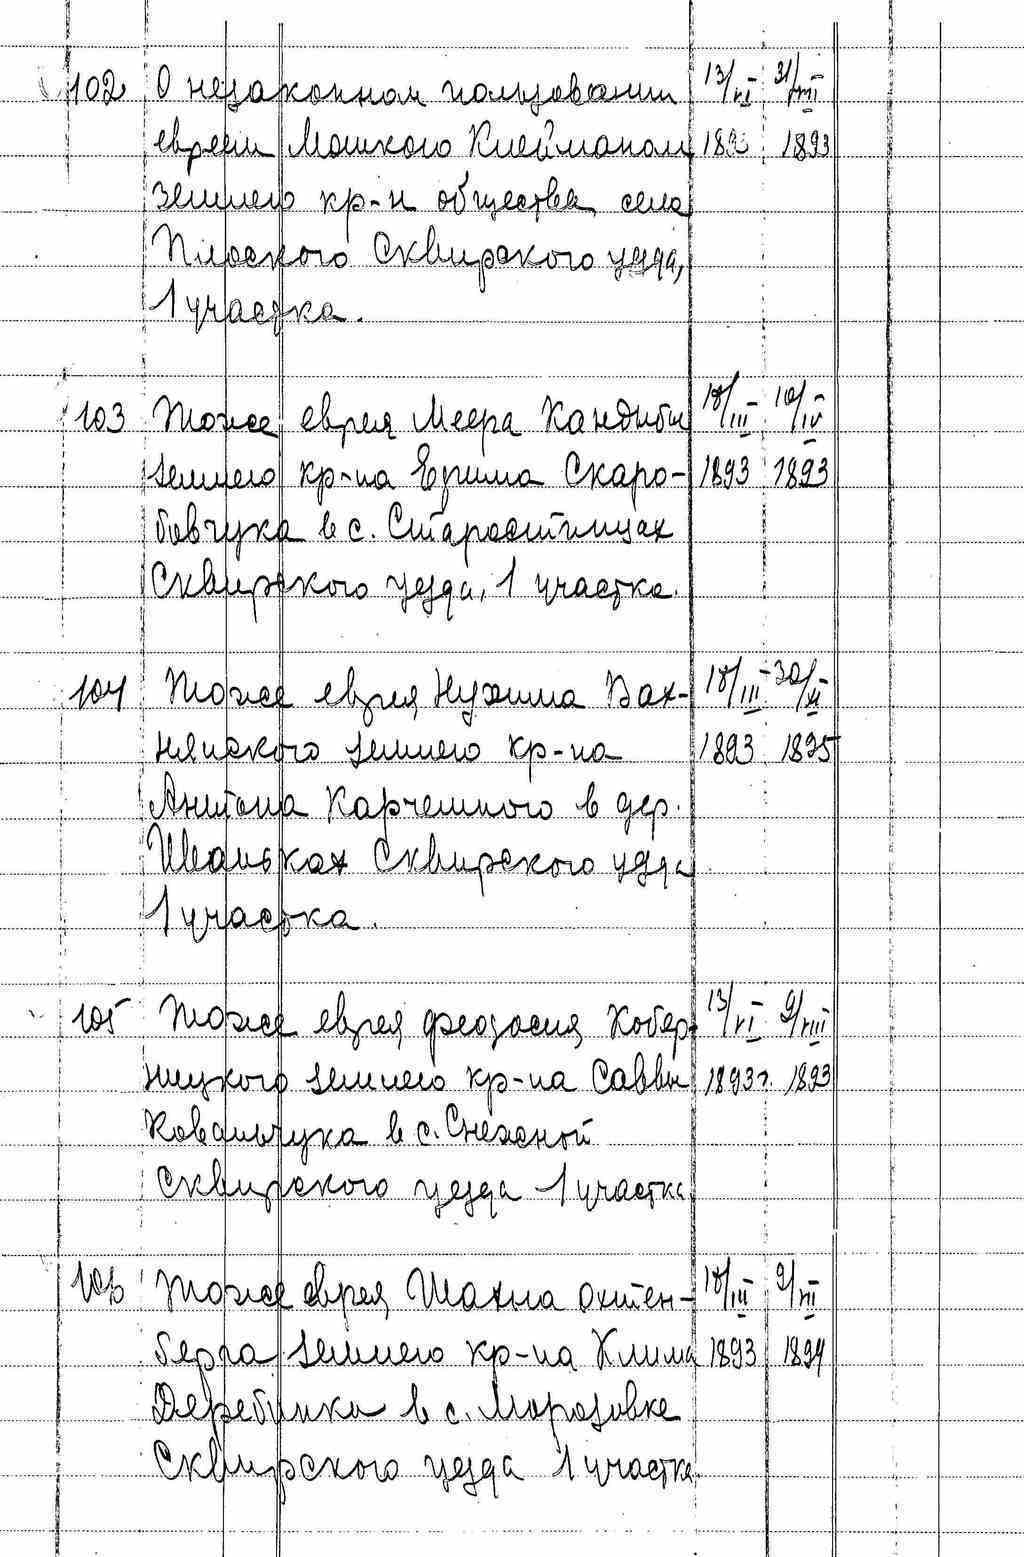 102 О незаконном пользовании 13/VI - 31/VIII
евреем Мошкого Клейманом 1893 1893
землею кр-н общества села
Плоского Сквирского уезда,
1 участка.
103 Тоже еврея Меера Кандыбы 18/III - 10/IV -
землею кр-на Ефима Скаро- 1893 1893
бовчука в с. Старостинцах
Сквирского уезда, 1 участка.
104 Тоже еврея Нухима Вах- 18/III - 30/XI -
нянского землею кр-на 1893 1895
Антона Карчемного в дер.
Иваньках Сквирского уезда
1 участка.
105 Тоже еврея Феодосия Кобер- 13/VI - 9/VIII -
ницкого землею кр-на Саввы 1893г. 1893
Ковальчука в с. Снежной
Сквирского уезда 1 участка
106 Тоже еврея Шахна Охтен- 18/III - 9/VII -
берга землею кр-на Клима 1893 1894
Деребчика в с. Морозовке
Сквирского уезда 1 участка.